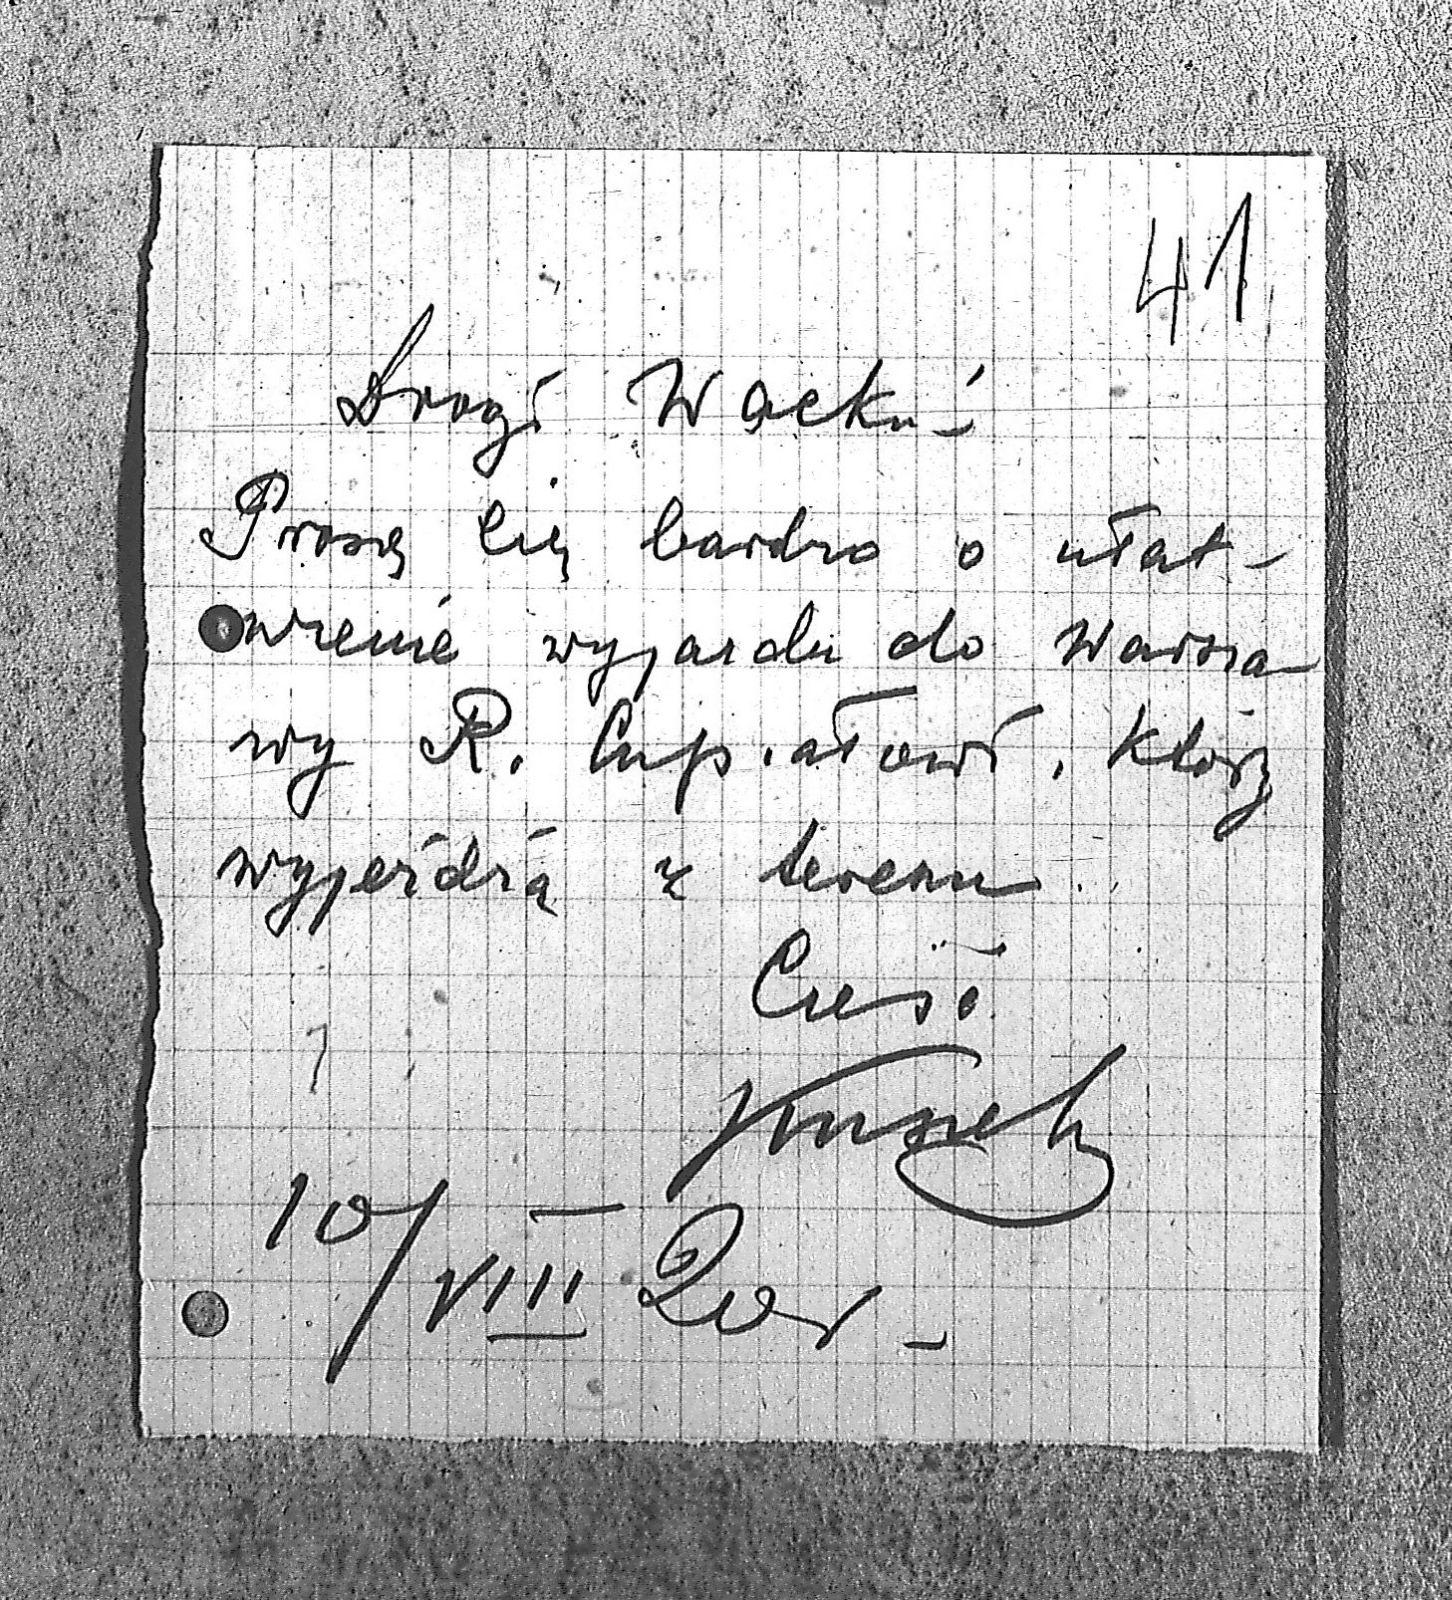 41
Drogi Wackuś
Proszę Cię bardzo o ułat-
wienie wyjazdu do Warsza
wy R. Cup.ałowi, którzy
wyjeżdżą z terenu
Cześć
10/VIII 20r-